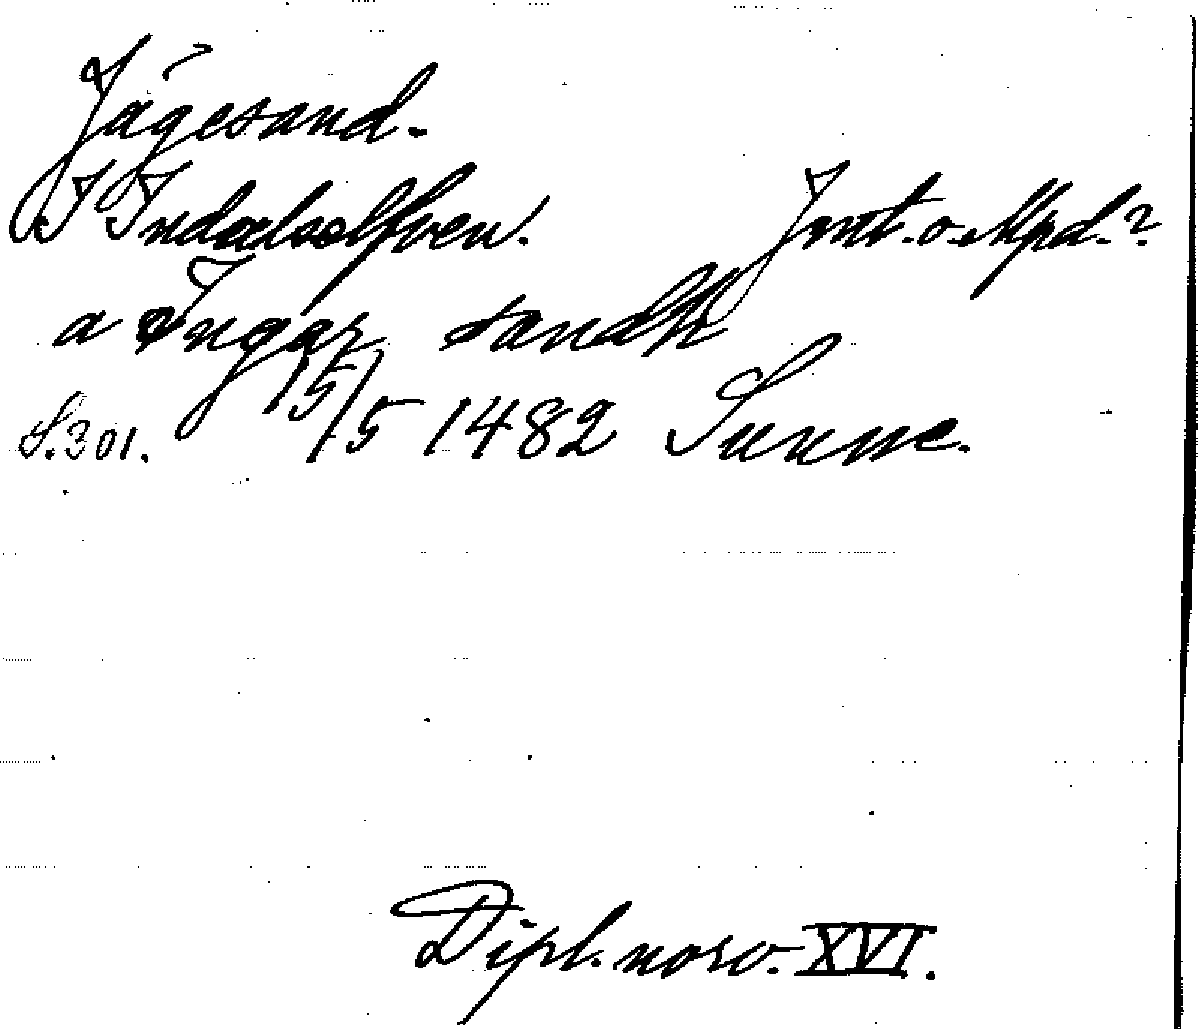 Jågesand.
I Indalselfven. Jmt. o. Mpd.?
a Jngar sandh
S. 301. 15/5 1482 Sunne.
Dipl. norv. XVI.